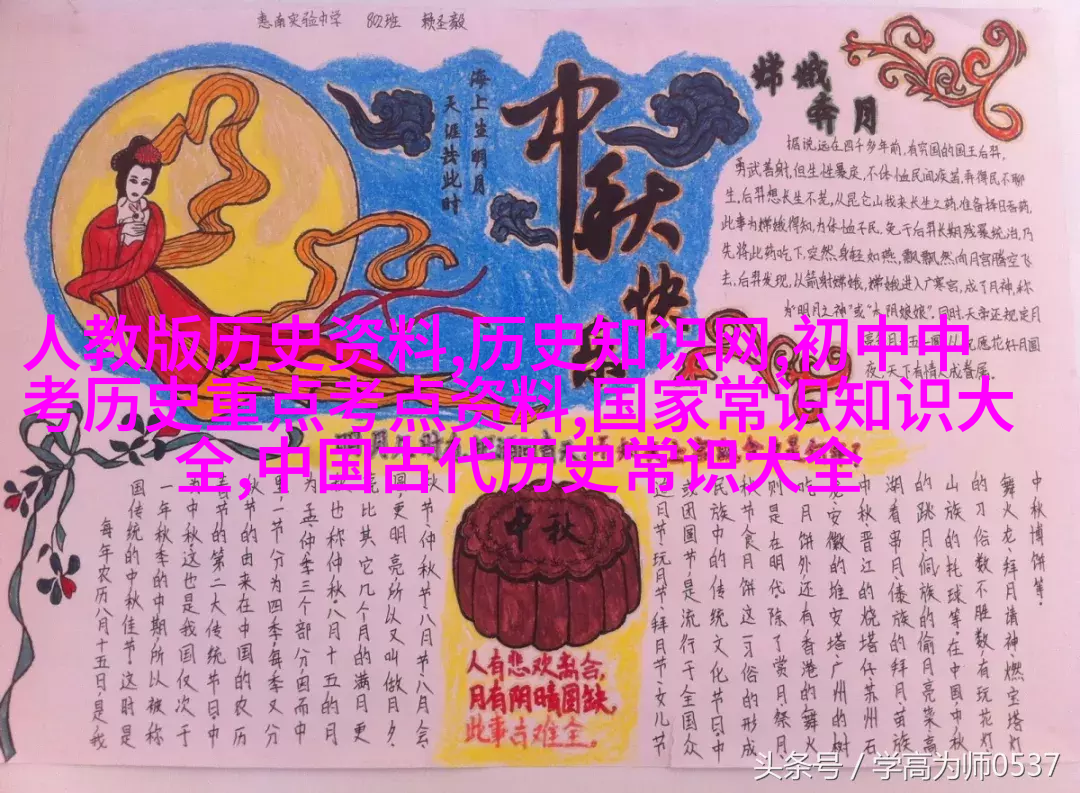 惠南实验中学 802班 赖圣毅
海上生明月
天涯共此时
中秋快
嫦娥
奔月
据说远在四千多年前,有穷国的国王后羿,
勇武善射,但生性暴戾,不体恤民间疾苦,弄得民不聊
生,后羿想长生不老,从昆仑山找来长生之药,准备择日吞药,
此事为嫦娥得知,为体恤平民,免于后羿长期残暴统治,乃
先将此药吃下,突然身轻如燕,飘飘然向月宫腾空飞
去,后羿发现,以箭射嫦娥,嫦娥进入广寒宫,成了月神,称
为"明月之神"或"太阴娘娘"。同时,天帝还规定月
夜,天下有情人成眷属。
人教版历史资料,历史知识网,初中中
考历史重点考点资料,国家常识知识大
全,中国古代历史常识大全
每年农历八月十五日,是我
国传统的中秋佳节。这时是
一年秋季的中期,所以被称
为中秋,这也是我国仅次于
春节的第二大传统节日,中
秋节的由来在中国的农历
里一节分为四季,每季又分
为孟、仲、季三个部分,因而中
秋也称仲秋。八月十五的月
亮比其它几个月的满月更
圆,更明亮,所以又叫做月夕,
秋节、仲秋节、八月节、八月会
中秋
人有悲欢离合,
月有阴晴圆缺,
此事古难全。
追月节、玩月节、拜月节、女儿节
或团圆节,是流行于全国众
民族中的传统文化节日,中
秋节食月饼这一习俗的形成
则是在明代除了赏月、祭月
吃月饼外还有香港的舞火
龙、安徽的堆宝塔、广州的树
中秋、晋江的烧塔仔、苏州石
湖看串月、傣族的拜月、苗族
的跳月、侗族的偷月亮菜、高
山族的托球等,在中国,中秋
的习俗数不胜数,有玩花灯
舞火龙、拜月请神、燃宝塔灯
中秋博饼等。
头条号 / 学高为师0537